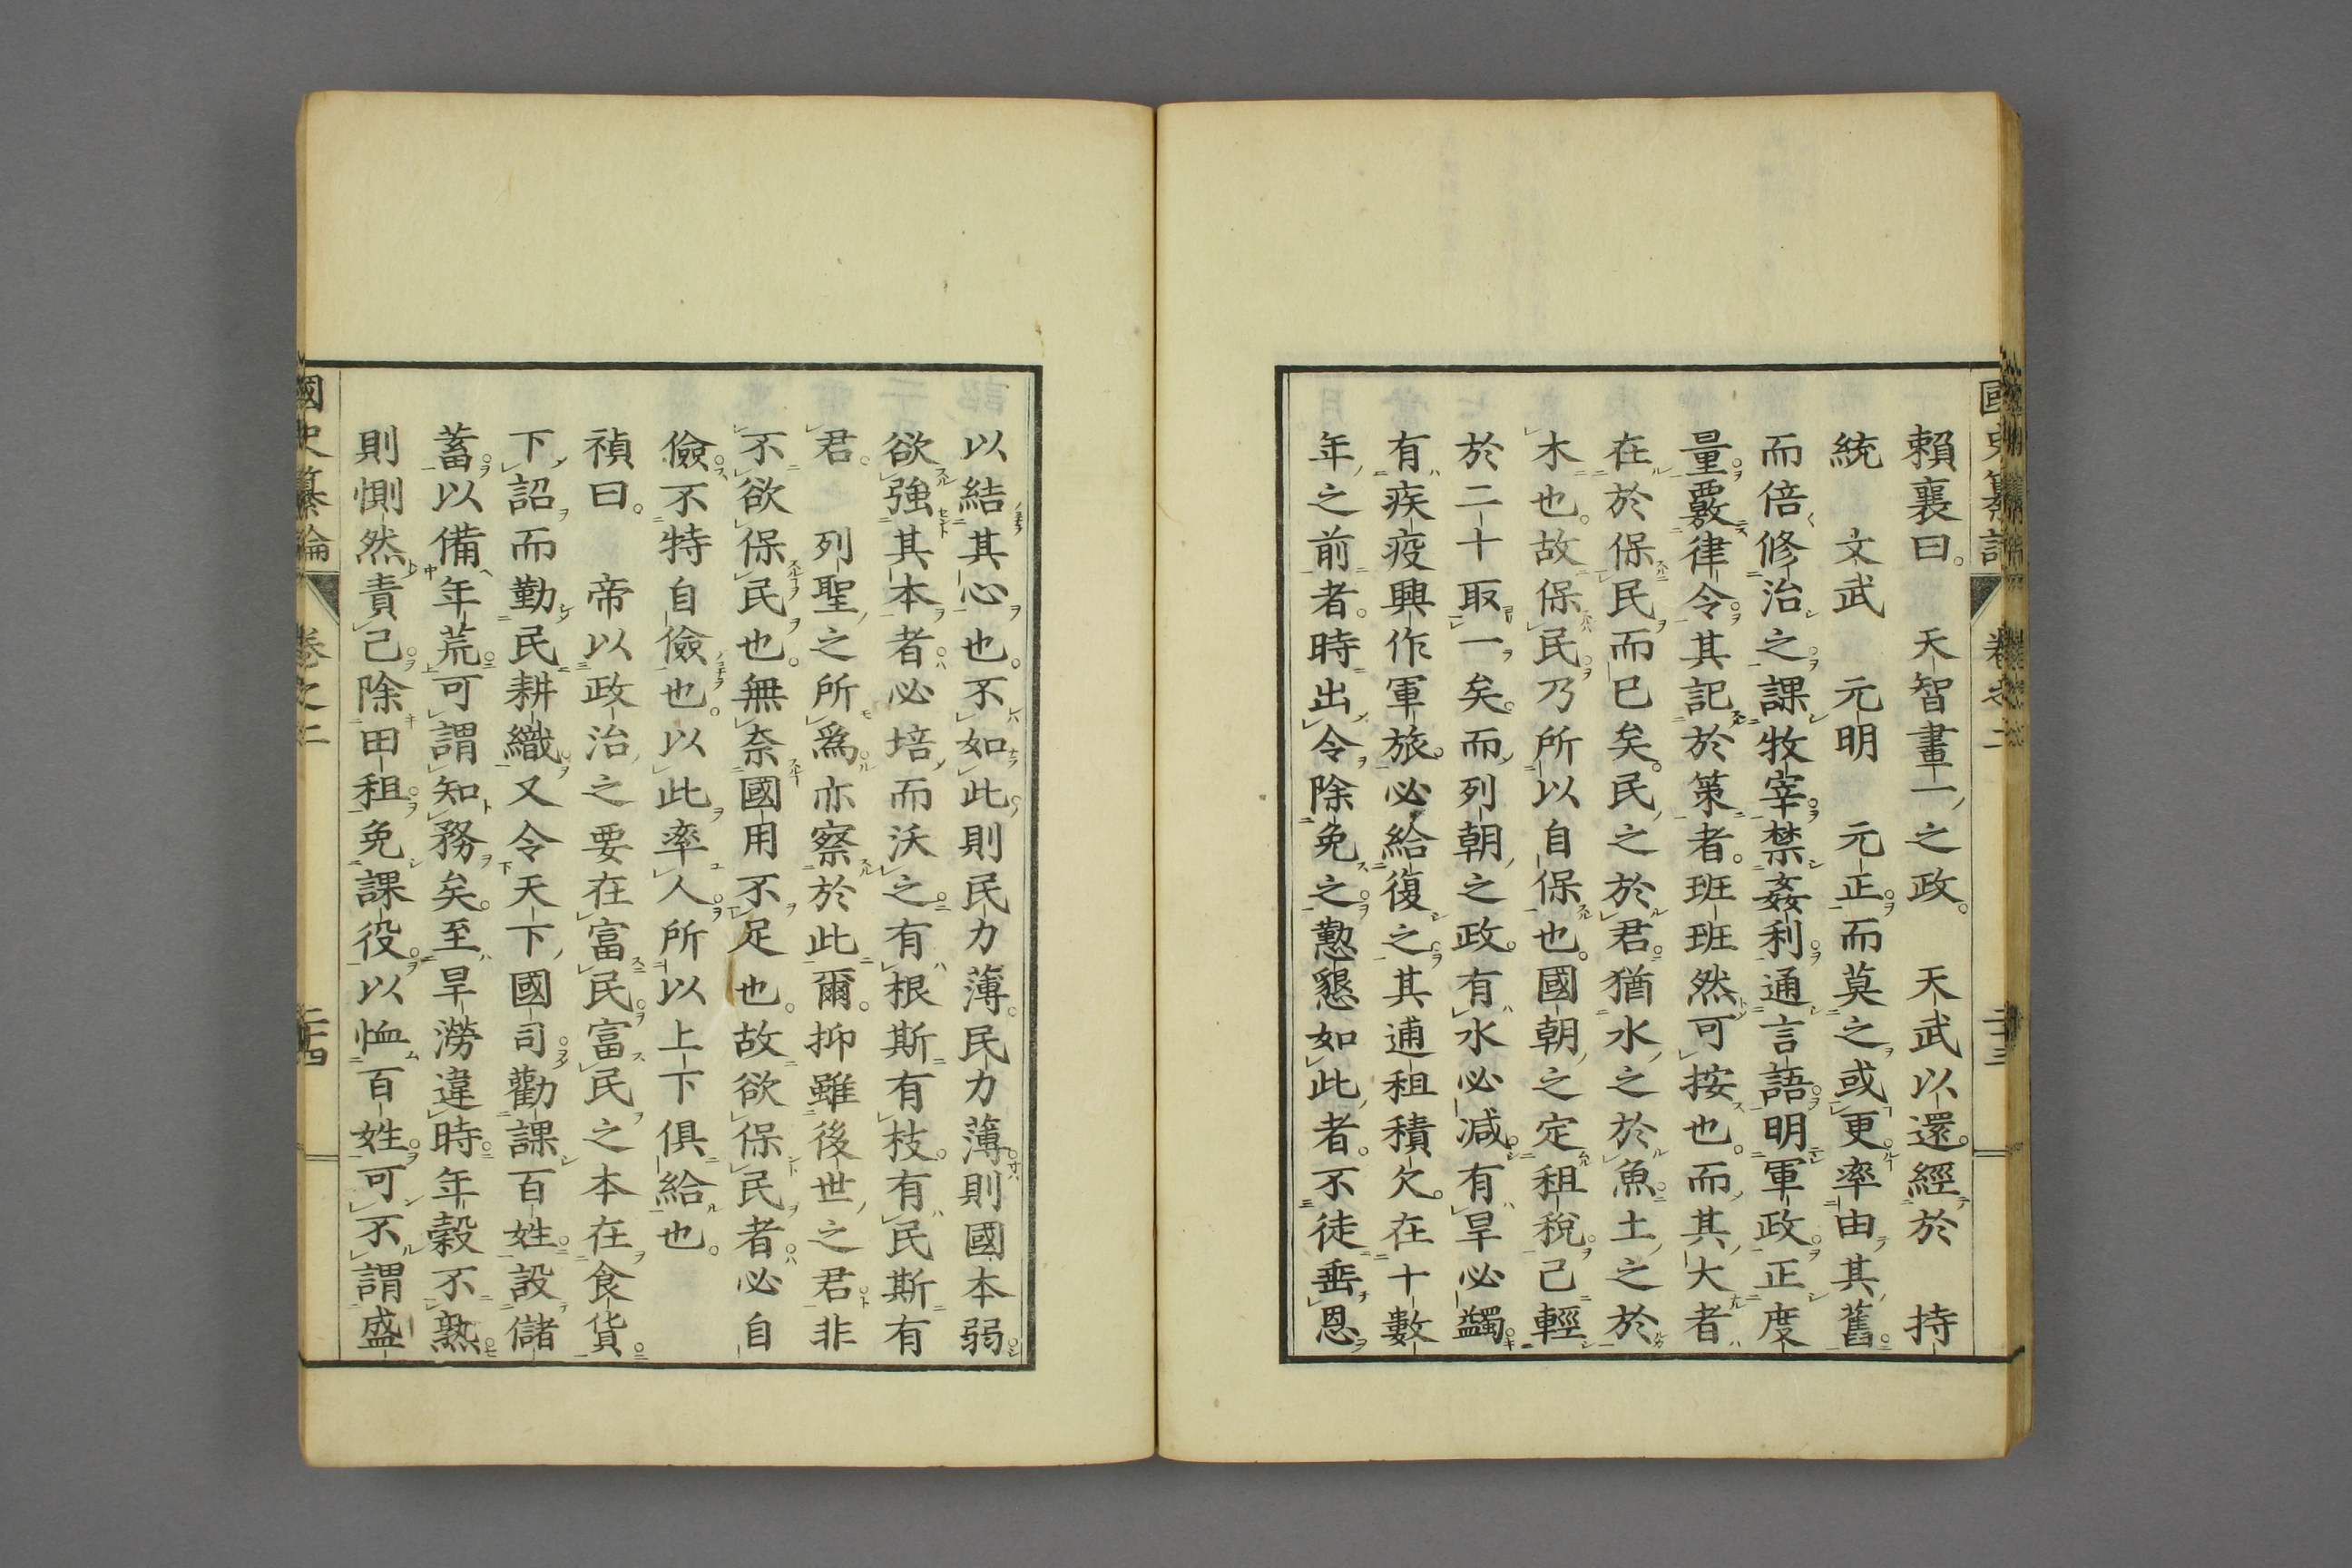 國史纂論 卷之二 二十三
賴襄曰。 天智畫一之政。 天武以還。經於 持
統 文武 元明 元正。而莫之或更。率由其舊
而倍修治之。課牧宰。禁姦利。通言語。明軍政。正度
量。覈律令。其記於策者。班班然可按也。而其大者
在於保民而已矣。民之於君。猶水之於魚。土之於
木也。故保民。乃所以自保也。國朝之定租稅。已輕
於二十取一矣。而列朝之政。有水必減。有旱必蠲。
有疾疫興作軍旅。必給復之。其逋租積欠。在十數
年之前者。時出令除免之。懃懇如此者。不徒垂恩
以結其心也。不如此。則民力薄。民力薄。則國本弱。
欲強其本者。必培而沃之。有根斯有枝。有民斯有
君。 列聖之所爲。亦察於此爾。抑雖後世之君。非
不欲保民也。無奈國用不足也。故欲保民者。必自
儉。不特自儉也。以此率人。所以上下俱給也。
禎曰。 帝以政治之要在富民。富民之本在食貨。
下詔而勤民耕織。又令天下國司。勸課百姓。設儲
蓄。以備年荒。可謂知務矣。至旱澇違時。年穀不熟。
則惻然責己。除田租。免課役。以恤百姓。可不謂盛
國史纂論 卷之二 二十四